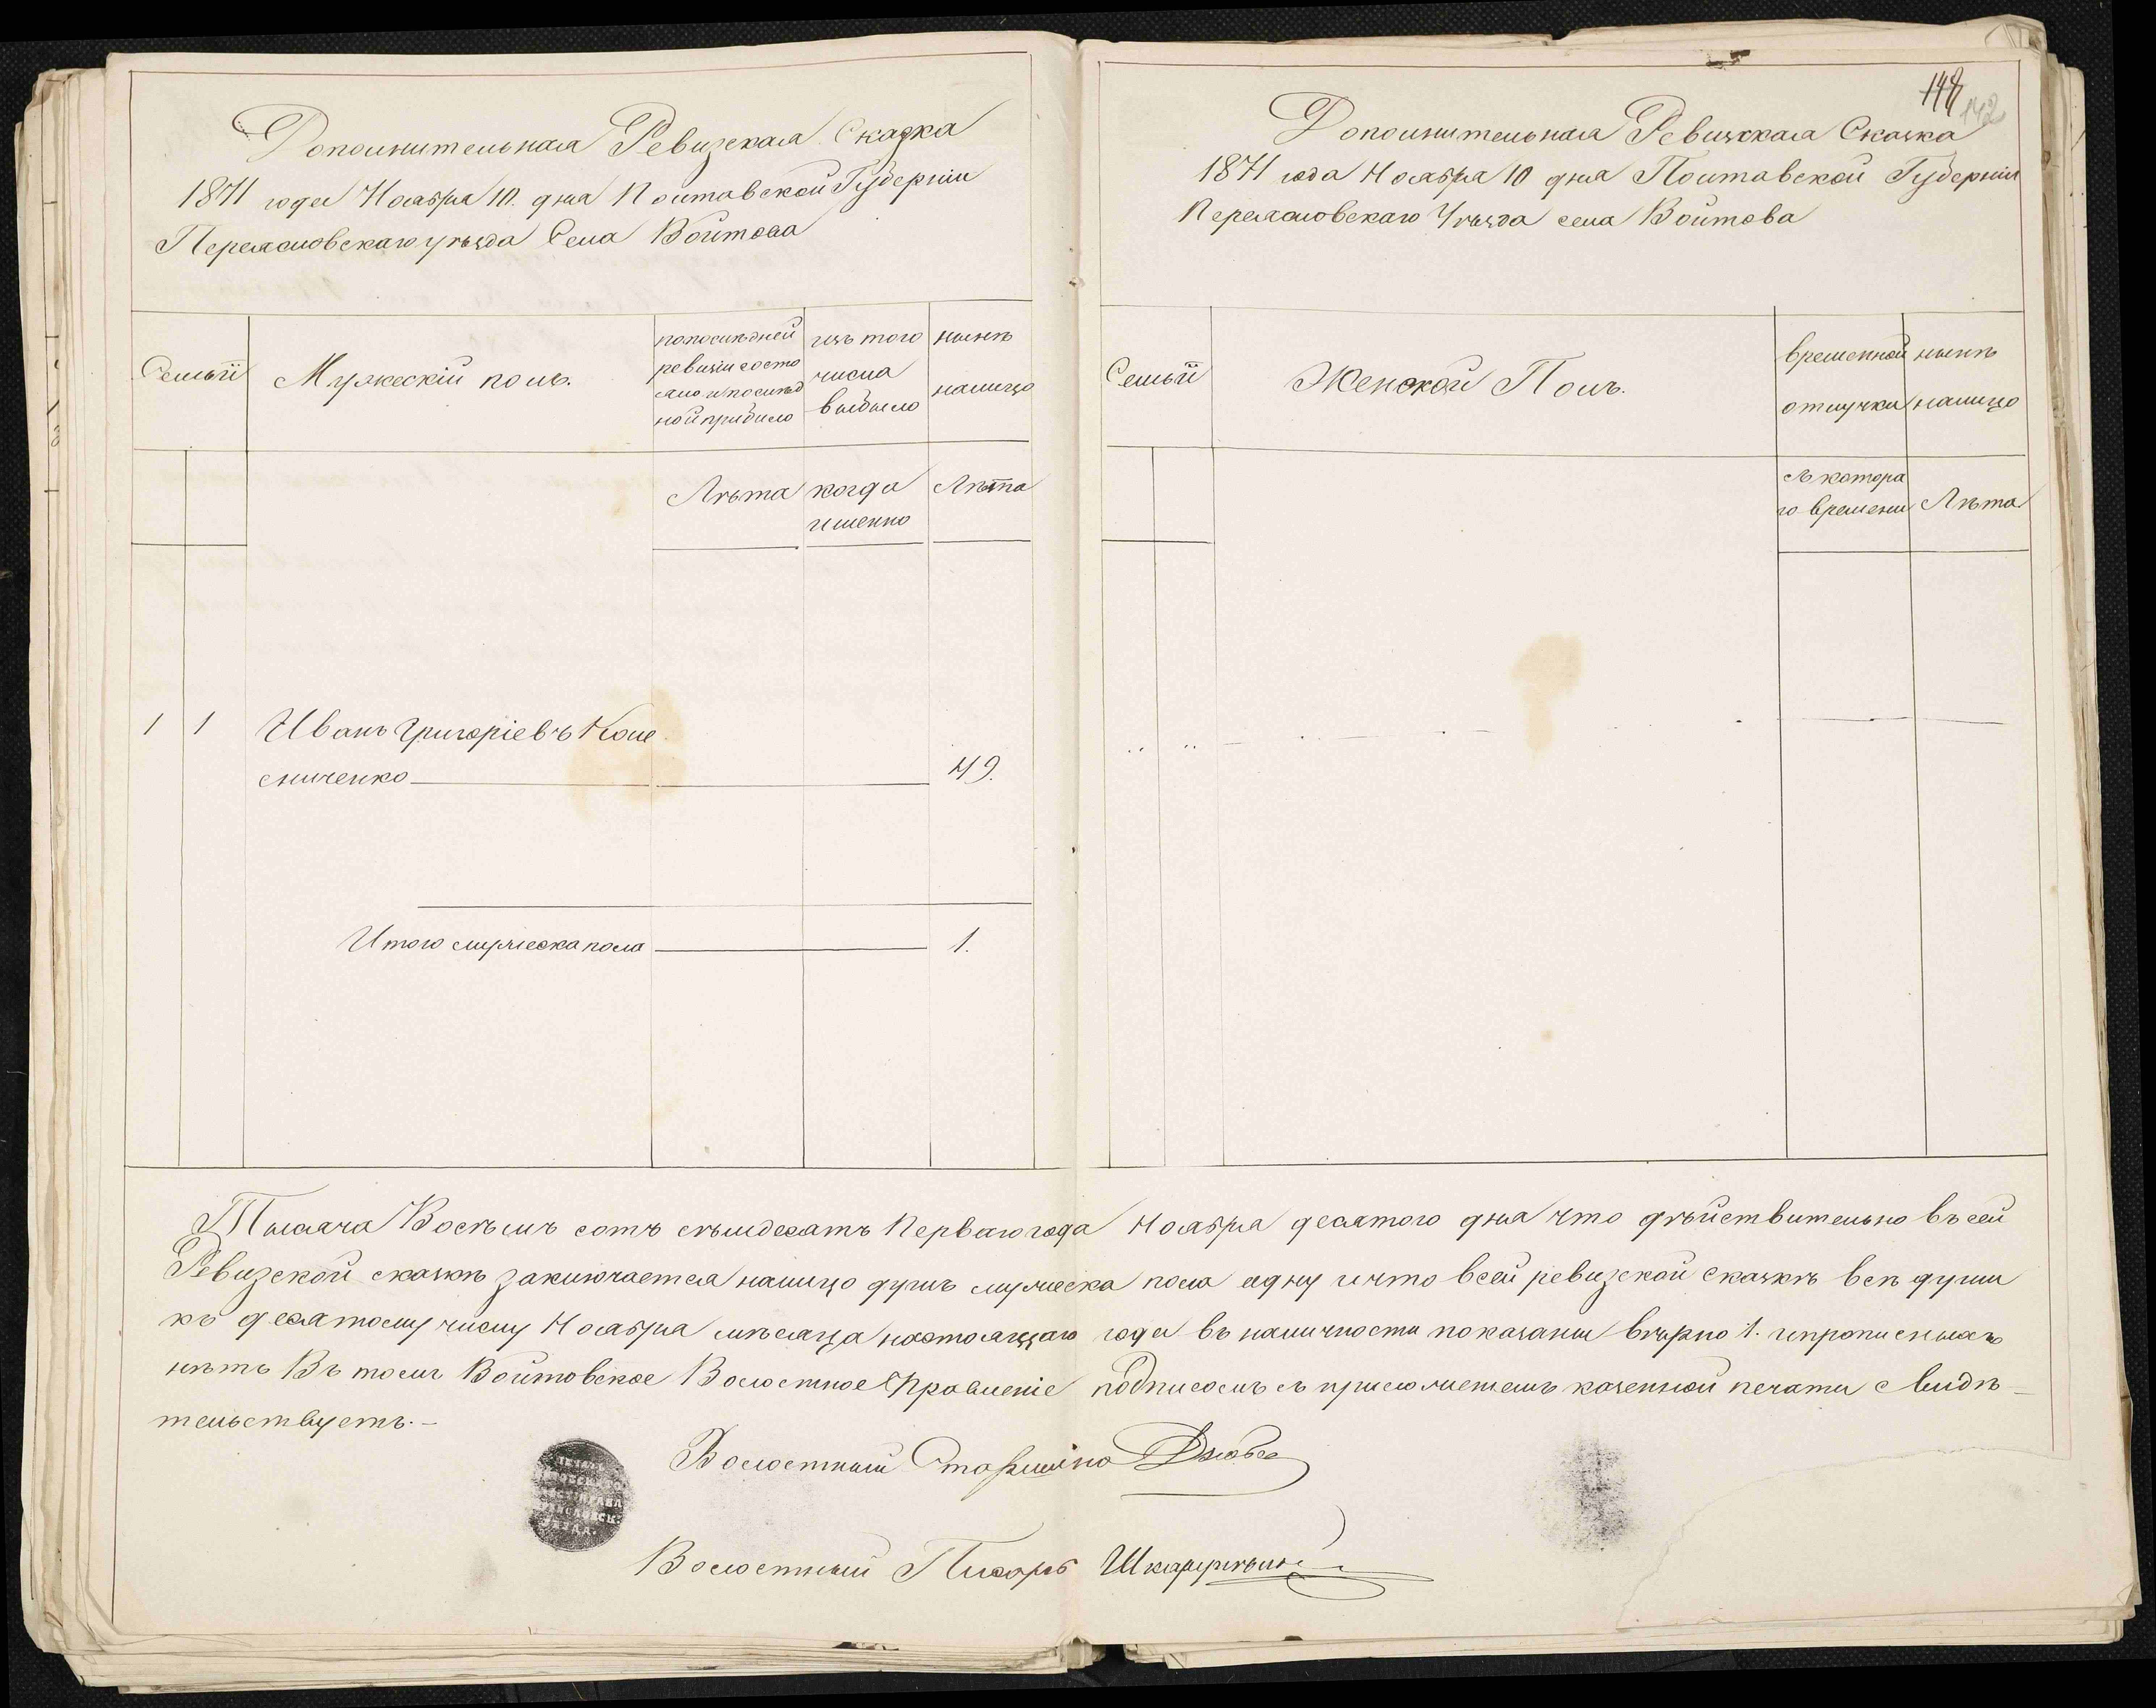 Дополнительная Ревизская Сказка
1871 года Ноября 10 дня Полтавской Губерніи
Переяславскаго уѣзда Села Войтова
Семьи
Мужескій полъ.
по последней
ревизіи состо
яло и послѣд
ной прибыло
изъ того
числа
выбыло
нынѣ
налицо
Лѣта
когда
именно
Лѣта
1 1 Иванъ Григоріевъ Коле
сниченко 49.
Итого мужеска пола 1.
148
142
Дополнительная Ревизская Сказка
1871 года Ноября 10 дня Полтавской Губерніи
Переяславскаго Уѣзда села Войтова
Семьи
Женской Полъ.
временной
отлучки
нынѣ
налицо
съ котора
го времени
Лѣта
Тысяча Восѣмъ сотъ сѣмдесятъ Перваго года Ноября десятого дня что дѣйствительно въ сей
Ревизской сказкѣ заключается налицо душъ мужеска пола одну и что всей ревизской сказкѣ всѣ души
къ десятому числу Ноября мѣсяца настоящаго года въ наличности показаны вѣрно 1. и прописныхъ
нѣтъ Въ томъ Войтовское Волостное Правленіе подписомъ съ приложеніемъ казенной печати Свидѣ-
тельствуетъ.-
Волостный Старшина
Волостный Писарь